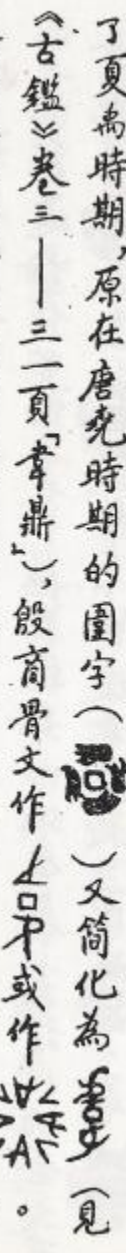 了夏禹時期，原在唐堯時期的圍字（）又簡化為（見
《古鑑》卷三——三一頁「韋鼎」），殷商骨文作或作。